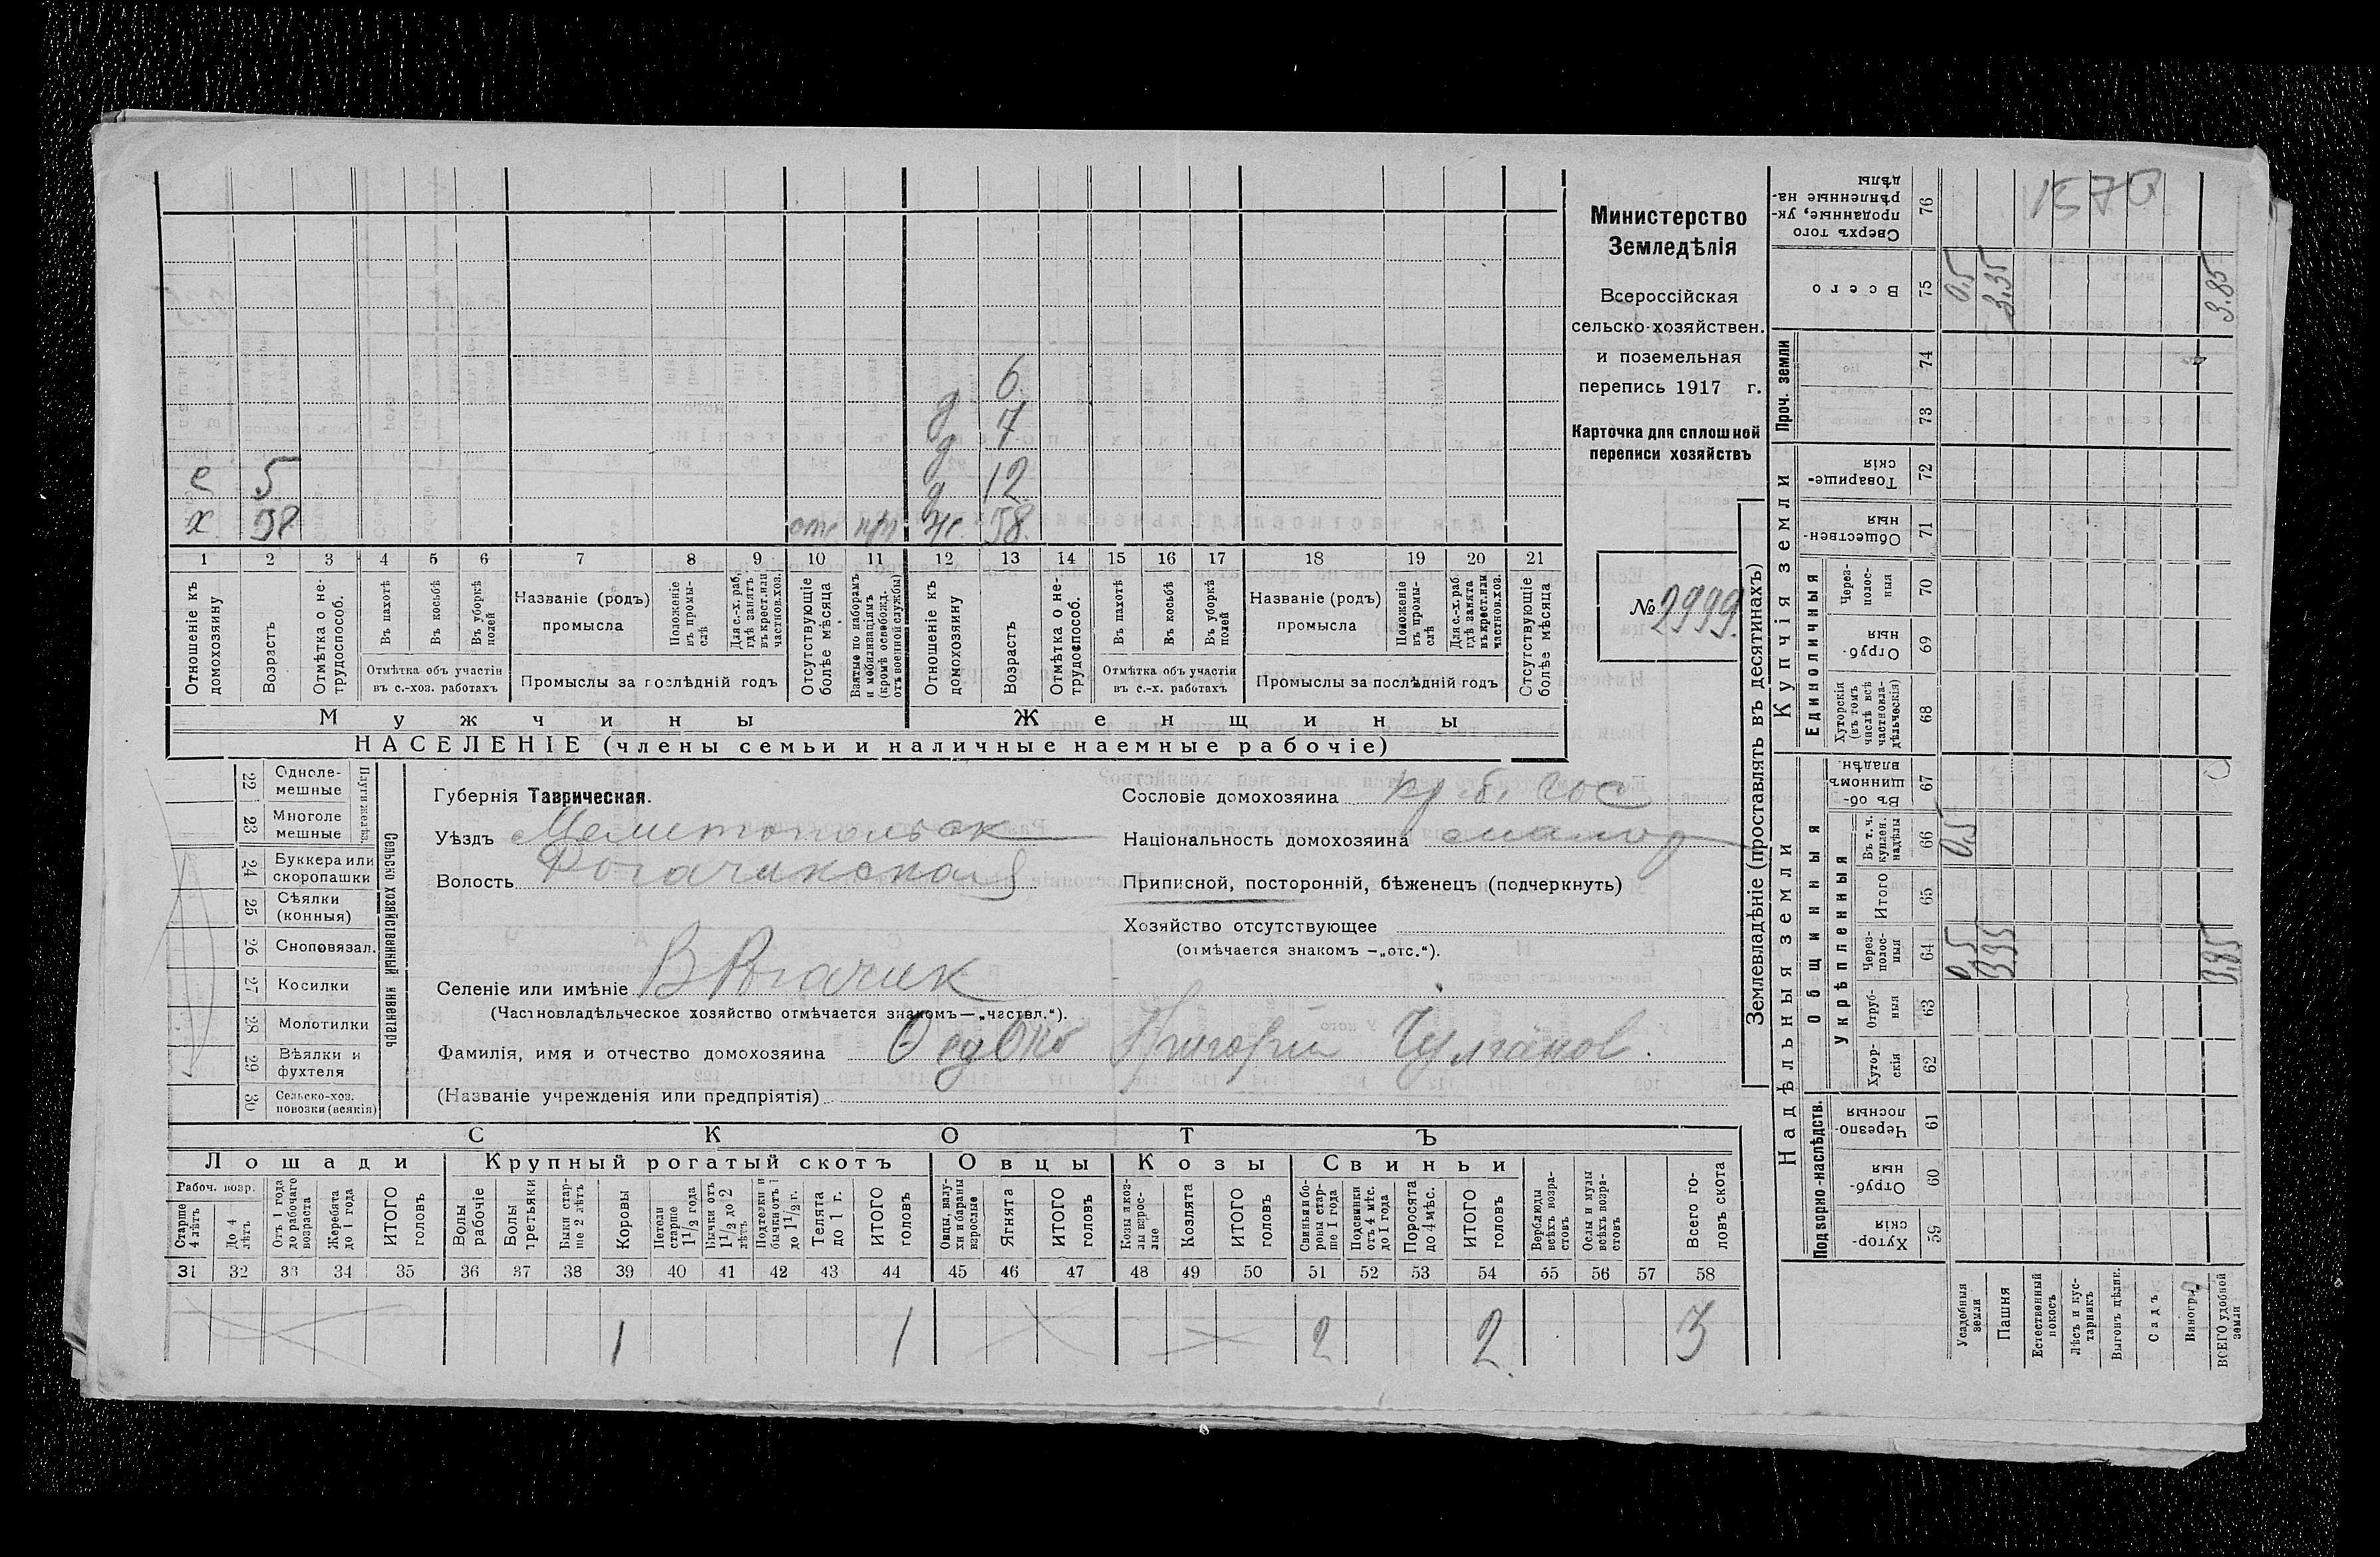 Министерство
Земледѣлія
Всероссійская
сельско-хозяйствен.
и поземельная
перепись 1917 г.
Карточка для сплошной
переписи хозяйствъ
№ 2999.
1570
6
д 7
д
с 5 д 12
х 38 отс п/п ж 38
1 2 3 4 5 6 7 8 9 10 11 12 13 14 15 16 17 18 19 20 21
Отношеніе къ домохозяину
Возрастъ
Отмѣтка о нетрудоспособ.
Въ пахотѣ
Въ косьбѣ
Въ уборкѣ полей
Отмѣтка объ участіи въ с.-хоз. работахъ
Названіе (родъ) промысла
Положеніе въ промыслѣ
Для с.-х. раб. гдѣ занятъ въ крест. или частнов. хоз.
Промыслы за послѣдній годъ
Отсутствующіе болѣе мѣсяца
Взятые по наборамъ и мобилизаціямъ (кромѣ освобожд. отъ военной службы)
Отношеніе къ домохозяину
Возрастъ
Отмѣтка о нетрудоспособ.
Въ пахотѣ
Въ косьбѣ
Въ уборкѣ полей
Отмѣтка объ участіи въ с.-х. работахъ
Названіе (родъ) промысла
Положеніе въ промыслѣ
Для с.-х. раб. гдѣ занята въ крест. или частнов. хоз.
Промыслы за послѣдній годъ
Отсутствующіе болѣе мѣсяца
Мужчины Женщины
НАСЕЛЕНІЕ (члены семьи и наличные наемные рабочіе)
Сельско хозяйственный инвентарь
Плуги желѣз.
22 Однолемешные
23 Многолемешные
24 Буккера или скоропашки
25 Сѣялки (конныя)
26 Сноповязал.
27 Косилки
28 Молотилки
29 Вѣялки и фухтеля
30 Сельско-хоз. повозки (всякія)
Губернія Таврическая.
Уѣздъ Мелитопольск
Волость Рогачикская
Селеніе или имѣніе В Рогачик
(Частновладѣльческое хозяйство отмѣчается знакомъ—„частвл.“).
Фамилія, имя и отчество домохозяина Григорій
(Названіе учрежденія или предпріятія)
Сословіе домохозяина кр. б. сос
Національность домохозяина малор
Приписной, посторонній, бѣженецъ (подчеркнуть)
Хозяйство отсутствующее
(отмѣчается знакомъ —„отс.“).
СКОТЪ
Лошади Крупный рогатый скотъ Овцы Козы Свиньи
Рабоч. возр.
Старше 4 лѣтъ
До 4 лѣтъ
Отъ 1 года до рабочаго возраста
Жеребята до 1 года
ИТОГО головъ
Волы рабочіе
Волы третьяки
Быки старше 2 лѣтъ
Коровы
Нетели старше 1½ года
Бычки отъ 1½ до 2 лѣтъ
Подтелки и бычки отъ 1 до 1½ г.
Телята до 1 г.
ИТОГО головъ
Овцы, валухи и бараны взрослые
Ягнята
ИТОГО головъ
Козы и козлы взрослые
Козлята
ИТОГО головъ
Свиньи и боровы старше 1 года
Подсвинки отъ 4 мѣс. до 1 года
Поросята до 4 мѣс.
ИТОГО головъ
Верблюды всѣхъ возрастовъ
Ослы и мулы всѣхъ возрастовъ
Всего головъ скота
31 32 33 34 35 36 37 38 39 40 41 42 43 44 45 46 47 48 49 50 51 52 53 54 55 56 57 58
1 1 2 2 3
Землевладѣніе (проставлять въ десятинахъ)
Надѣльныя земли Купчія земли Проч. земли
Подворно-наслѣдств.
Общинныя
Укрѣпленныя
Единоличныя
59 Хуторскія
60 Отрубныя
61 Черезполосныя
62 Хуторскія
63 Отрубныя
64 Черезполосныя
65 Итого
66 Въ т. ч. куплен. надѣлы
67 Въ общинномъ владѣн.
68 Хуторскія (въ томъ числѣ всѣ частновладѣльческія)
69 Отрубныя
70 Черезполосныя
71 Общественныя
72 Товарищескія
73
74
75 Всего
76 Сверхъ того проданные, укрѣпленные надѣлы
Усадебныя земли
Пашня
Естественный покосъ
Лѣсъ и кустарникъ
Выгонъ цѣлин.
Садъ
Виногр.
ВСЕГО удобной земли
0.5 3.35 3.85
0.5
0.5 3.35 3.85